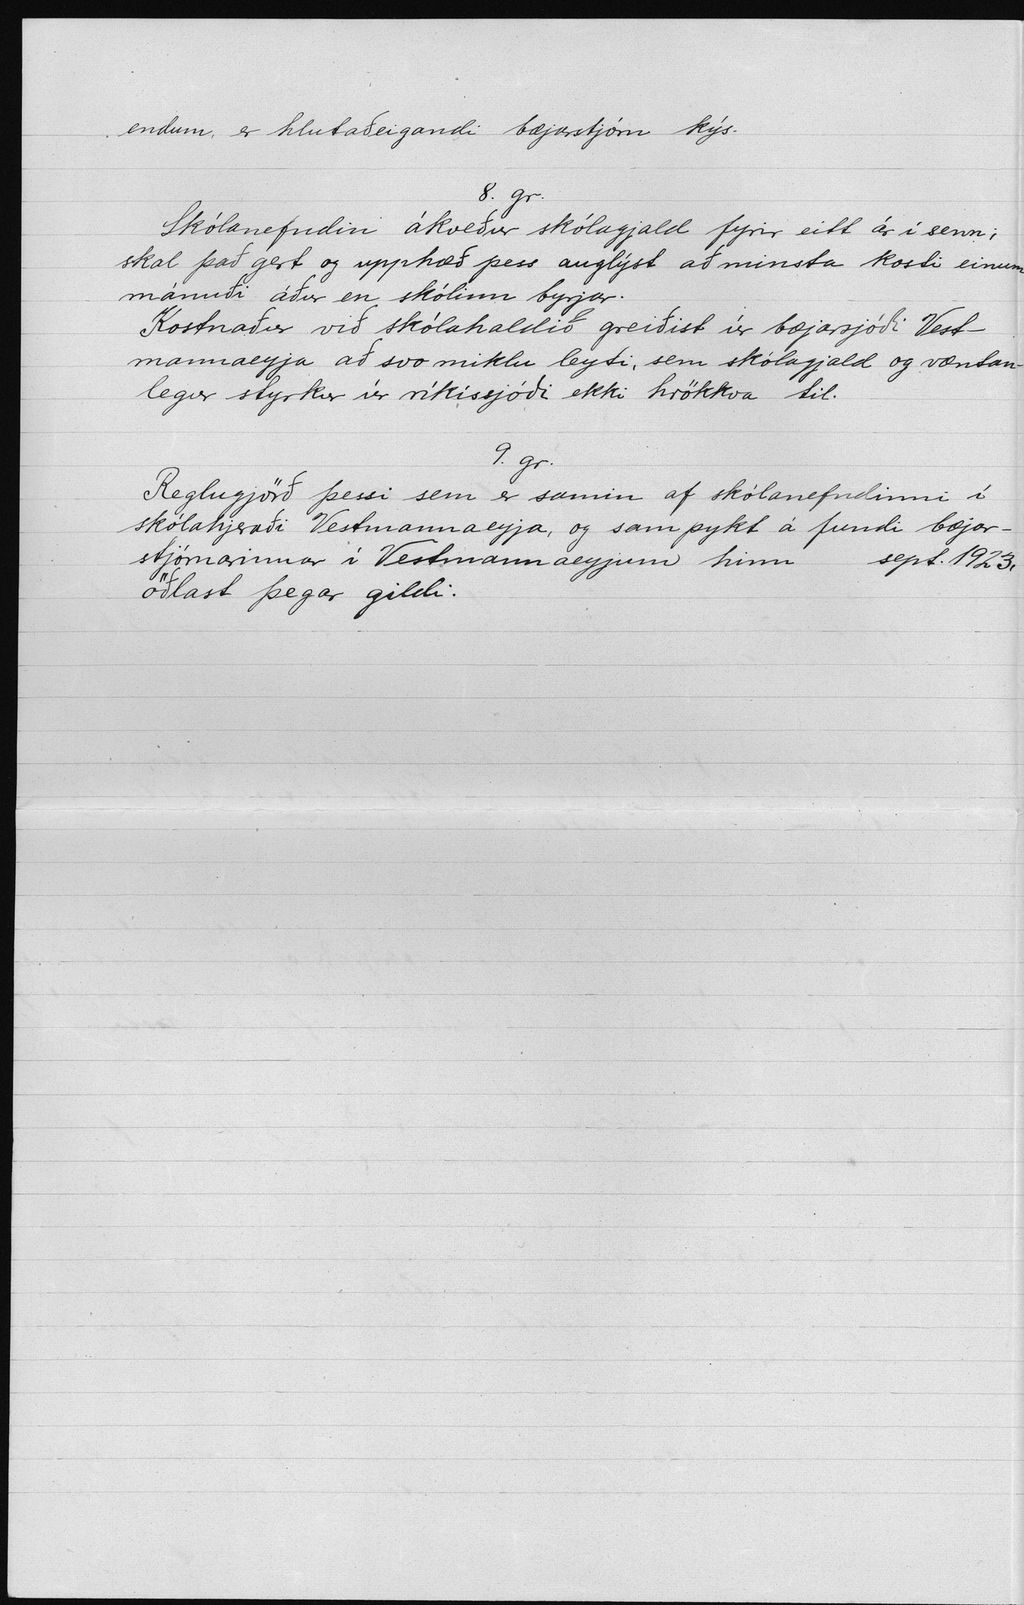 endum, er hlutaðeigandi bæjarstjórn kýs.
8. gr.
Skólanefndin ákveður skólagjald fyrir eitt ár í senn;
skal það gert og upphæð þess auglýst að minsta kosti einum
mánuði áður en skólinn byrjar.
Kostnaður við skólahaldið greiðist úr bæjarsjóði Vest-
mannaeyja að svo miklu leyti, sem skólagjald og væntan-
legur styrkur úr ríkissjóði ekki hrökkva til.
9. gr.
Reglugjörð þessi sem er samin af skólanefndinni í
skólahjeraði Vestmannaeyja, og samþykt á fundi bæjar-
stjórnarinnar í Vestmannaeyjum hinn sept. 1923,
öðlast þegar gildi.